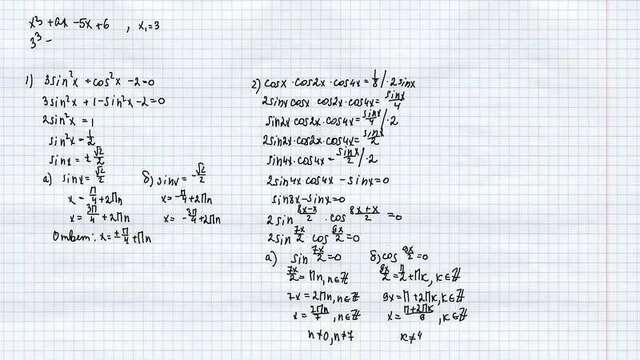 x³ + ax - 5x + 6 , x₁ = 3
3³ -
1) 3sin²x + cos²x - 2 = 0
3sin²x + 1 - sin²x - 2 = 0
2sin²x = 1
sin²x = 1/2
sinx = ± √2/2
а) sinx = √2/2 б) sinx = -√2/2
x = π/4 + 2πn x = -π/4 + 2πn
x = 3π/4 + 2πn x = -3π/4 + 2πn
Ответ: x = ± π/4 + πn
2) cosx · cos2x · cos4x = 1/8 / · 2sinx
2sinx cosx cos2x cos4x = sinx/4
sin2x cos2x cos4x = sinx/4 / · 2
2sin2x·cos2x·cos4x = sinx/2
sin4x·cos4x = sinx/2 / · 2
2sin4x cos4x - sinx = 0
sin8x - sinx = 0
2sin (8x-x)/2 · cos (8x+x)/2 = 0
2sin 7x/2 cos 9x/2 = 0
а) sin 7x/2 = 0 б) cos 9x/2 = 0
7x/2 = πn, n∈ℤ 9x/2 = π/2 + πk, k∈ℤ
7x = 2πn, n∈ℤ 9x = π + 2πk, k∈ℤ
x = 2πn/7, n∈ℤ x = (π+2πk)/9, k∈ℤ
n≠0, n≠7 k≠4